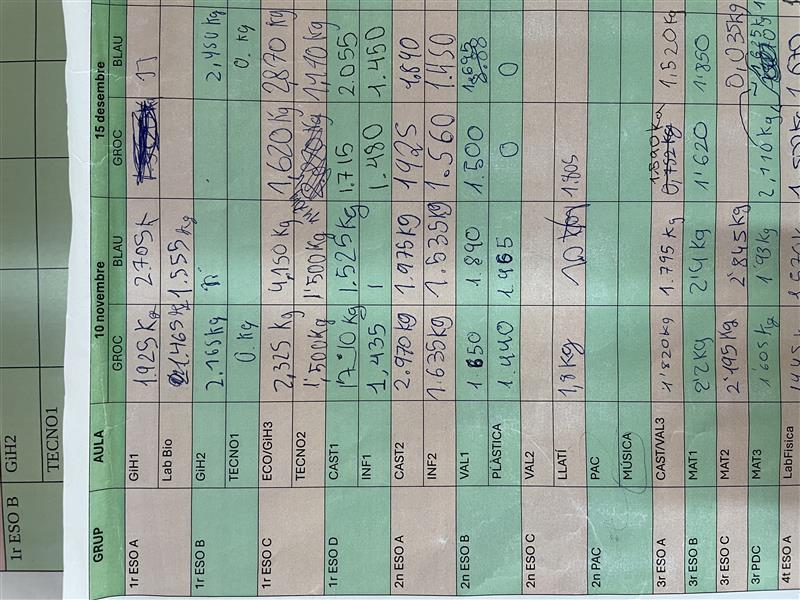 1r ESO B GiH2
TECNO1
GRUP AULA 10 novembre 15 desembre
GROC BLAU GROC BLAU
1r ESO A GiH1 1925 Kg 2.705 k
Lab Bio 1.465 Kg 1.555 Kg
1r ESO B GiH2 2.165 kg 2,450 Kg
TECNO1 0. Kg 0. Kg
1r ESO C ECO/GiH3 2,325 Kg 4,150 Kg 1,620 Kg 2,870 Kg
TECNO2 1'500 Kg 1'500 Kg
1r ESO D CAST1 1.525 kg 1.715 2.055
INF1 1,435 1.480 1.450
2n ESO A CAST2 2.970 kg 1.975 kg 1925 1,840
INF2 1.635 kg 1.535 kg 1.560 1.450
2n ESO B VAL1 1650 1.890 1.500 1.695
PLÀSTICA 1.440 1.465 0 0
2n ESO C VAL2
LLATÍ 1,8 kg 1.805
2n PAC PAC
MÚSICA
3r ESO A CAST/VAL3 1'820 kg 1.795 kg 0,752 kg 1,520 kg
3r ESO B MAT1 2'2 kg 2'4 kg 1'620 1'850
3r ESO C MAT2 2'195 kg 2'845 kg 0,035 kg
3r PDC MAT3 1'605 kg 1'93 kg 2,110 kg
4t ESO A LabFísica